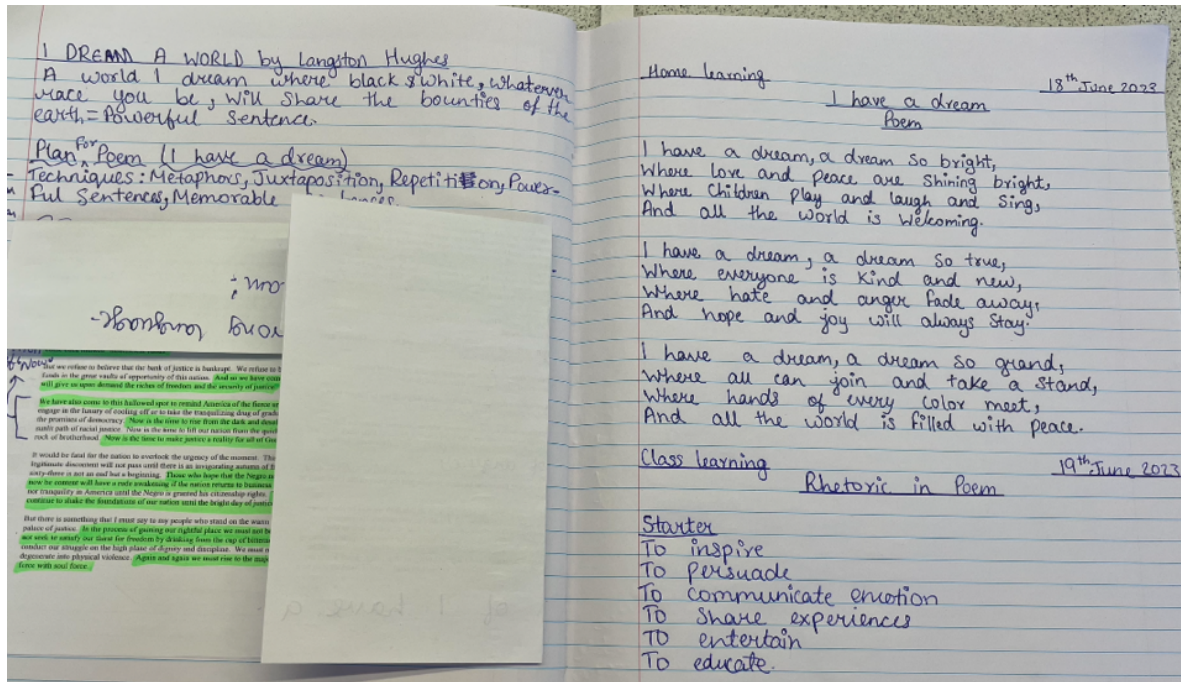 I DREAM A WORLD by Langston Hughes
A world I dream where black & white, whatever
race you be, will share the bounties of the
earth = Powerful sentence.
Plan for Poem (I have a dream)
Techniques: Metaphors, Juxtaposition, Repetition, Power-
ful Sentences, Memorable
language-
But we refuse to believe that the bank of justice is bankrupt. We refuse to
funds in the great vaults of opportunity of this nation. And so we have
will give us upon demand the riches of freedom and the security of justice.
We have also come to this hallowed spot to remind America of the fierce
engage in the luxury of cooling off or to take the tranquilizing drug of
the promises of democracy. Now is the time to rise from the dark and
path of racial justice. Now is the time to lift our nation from the
rock of brotherhood. Now is the time to make justice a reality for all of
It would be fatal for the nation to overlook the urgency of the moment.
legitimate discontent will not pass until there is an invigorating autumn of
sixty-three is not an end but a beginning. Those who hope that the Negro
now be content will have a rude awakening if the nation returns to business
nor tranquility in America until the Negro is granted his citizenship rights.
continue to shake the foundations of our nation until the bright day of justice
But there is something that I must say to my people who stand on the warm
palace of justice. In the process of gaining our rightful place we must not be
not seek to satisfy our thirst for freedom by drinking from the cup of
conduct our struggle on the high plane of dignity and discipline. We must
degenerate into physical violence. Again and again we must rise to the
force with soul force.
of I have a
Home learning
18th June 2023
I have a dream
Poem
I have a dream, a dream so bright,
Where love and peace are shining bright,
Where Children play and laugh and sing,
And all the world is welcoming.
I have a dream, a dream so true,
Where everyone is kind and new,
Where hate and anger fade away,
And hope and joy will always stay.
I have a dream, a dream so grand,
Where all can join and take a stand,
Where hands of every color meet,
And all the world is filled with peace.
Class learning
19th June 2023
Rhetoric in Poem
Starter
To inspire
To persuade
To communicate emotion
To share experiences
To entertain
To educate.